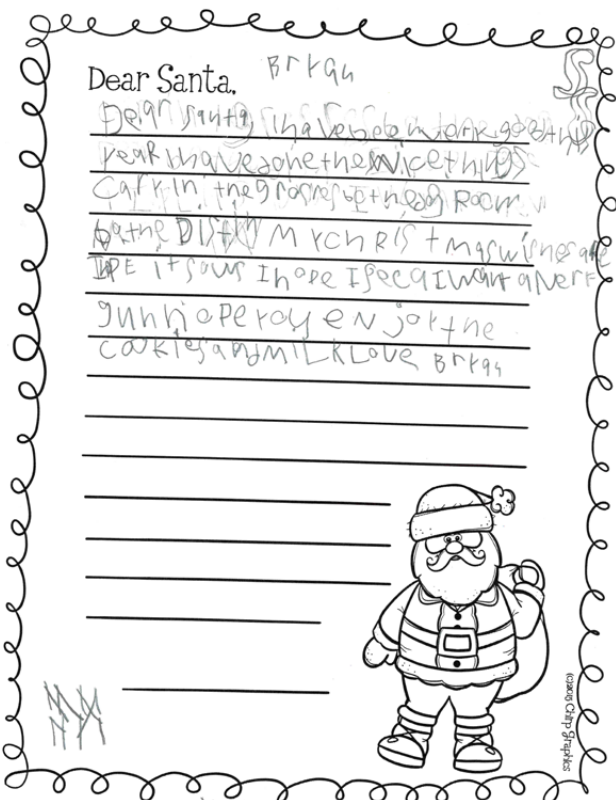 Dear Santa,
Bryan
Dear santa i have been very good this
year i have done the nice things
Cary in the groseres I
the Dishis My chRistmas wishes are
I want a NerF
gun hi ope you eNjoy the
cookies and MiLK Love Bryan
(c)2015 Chirp Graphics